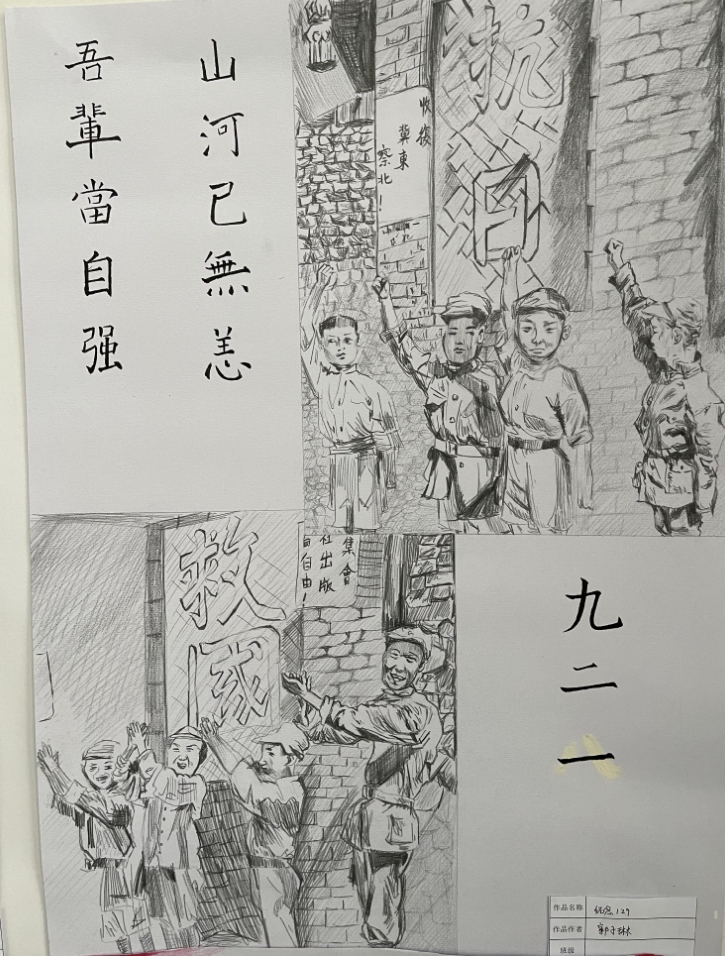 山河已無恙
吾輩當自强
抗日
收復
冀東
察北！
救國
集會
社出版
自由！
九二一
作品名称 纪念129
作品作者
班级